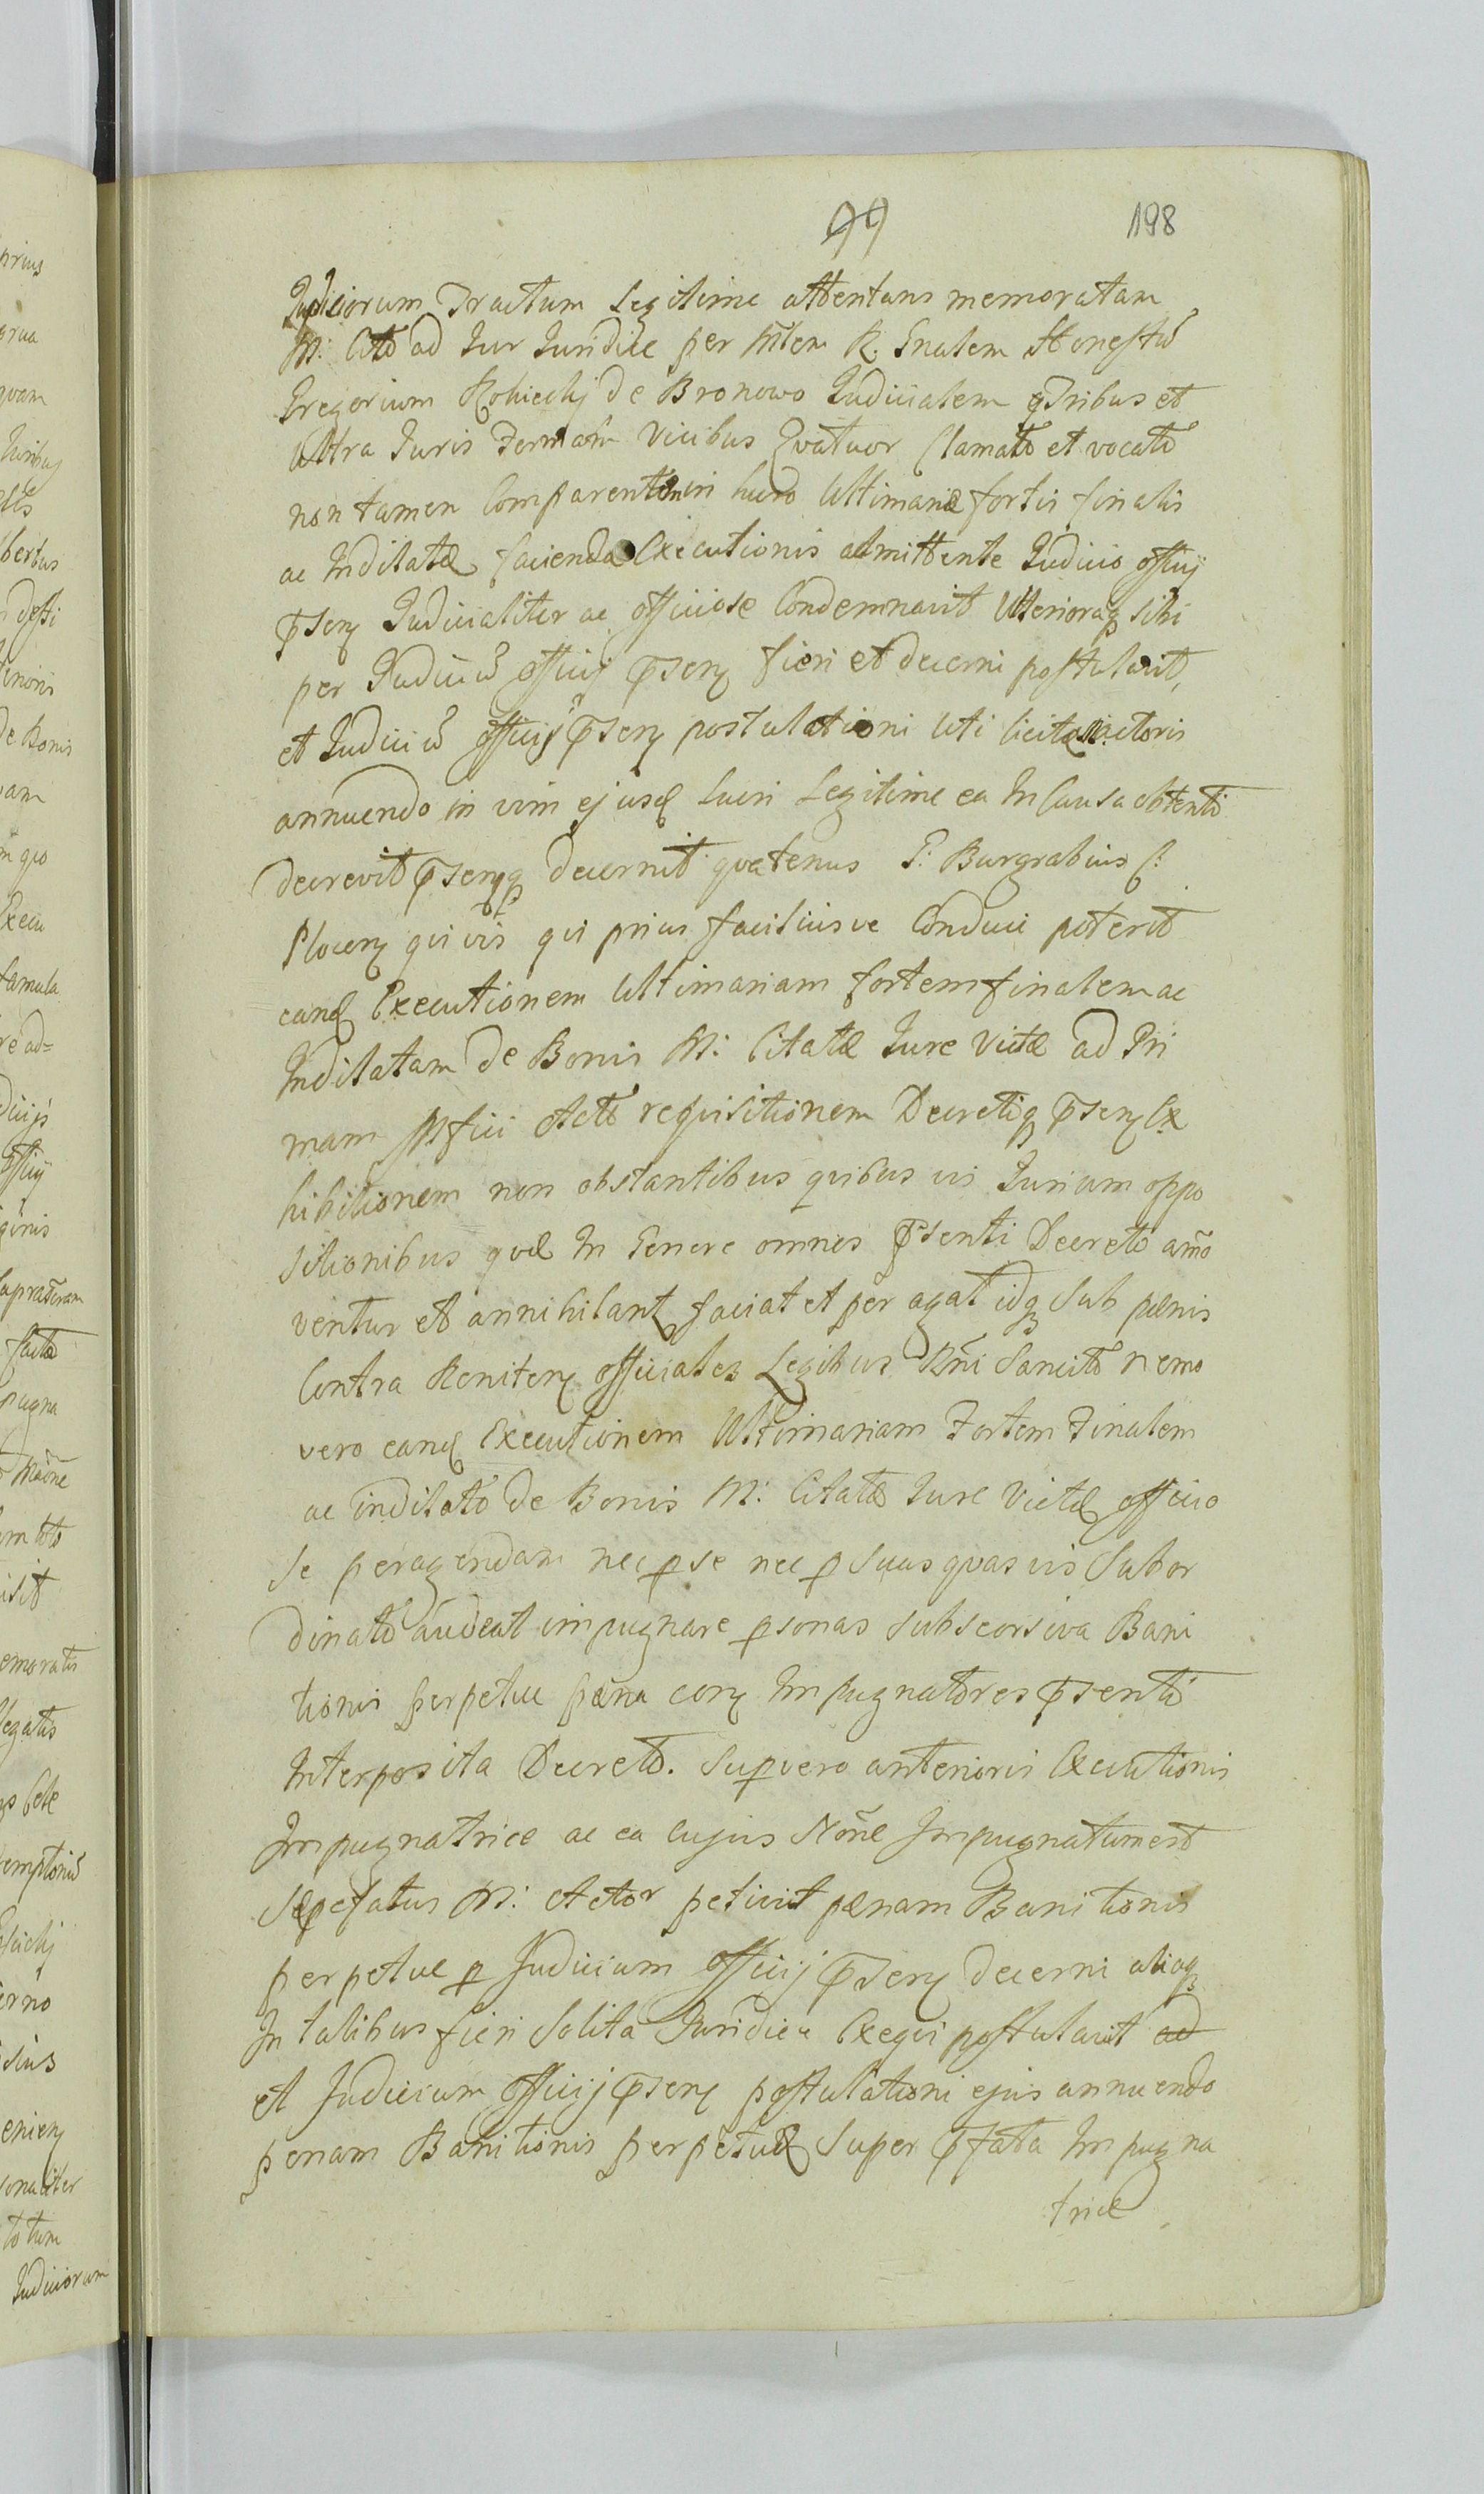 99 198
Judiciorum Tractum Legitime attentans memoratam
M: Citō ad Jur Juridice per Mtem R. Gnalem Honestū
Gregorium Kobiecky de Bronowo Judicialem q Tribus et
Ultra Juris Formam vicibus Qvatuor Clamatō et vocatō
non tamen Comparentem in lucro Ultimariæ fortis finalis
ac Indilatæ faciendæ Executionis admittente Judicio officij
pñseñ Judicialiter ac officiose Condemnavit Ulterioraq sibi
per Judiciū officij pñseñ fieri et decerni postulavit,
et Judiciū officij pñseñ postulationi uti licitæ M: Actoris
annuendo in vim ejusd lucri Legitime ea In Causa obtenti
decrevit pñseñq decernit qvatenus G: Burgrabius C:
Plocen qvivis qvi prius faciliusve Conduci poterit
eand Executionem Ultimariam fortem finalem ac
Indilatam de Bonis M: Citatæ Jure Victæ ad Pri
mam Mfici Actō reqvisitionem Decretiq pñseñ Ex
hibitionem non obstantibus qvibus vis Jurium oppo
sitionibus qvæ In Genere omnes pñsenti Decreto amō
ventur et annihilant faciat et per agat idq sub pænis
Contra Reniteñ officiales Legibus Rñi Sancitō nemo
vero eand Executionem Ultimariam Fortem Finalem
ac indilatō de Bonis M: Citatæ Jure Victæ officio
se peragendam nec p se nec p suas qvasvis Subor
dinatō audeat impugnare psonas sub scorsiva Bani
tionis perpetuæ pæna coñ Impugnatores pñsenti
Interposita Decretō. Sup vero anterioris Executionis
Impugnatrice ac ea cujus Nōne Impugnatum est
Sæpefatus M: Actor petivit pænam Banitionis
perpetuæ p Judicium officij pñseñ decerni aliaq
In talibus fieri Solita Juridice Exeqvi postulavit ad
et Judicium officij pñseñ postulationi ejus annuendo
pænam Banitionis perpetuæ Super pfata Impugna
trice